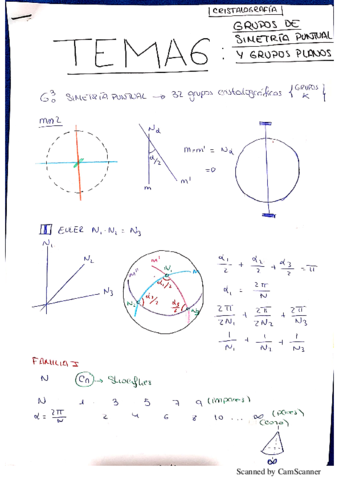 CRISTALOGRAFÍA
TEMA 6 :
GRUPOS DE
SIMETRÍA PUNTUAL
Y GRUPOS PLANOS
G₀³ SIMETRÍA PUNTUAL → 32 grupos cristalográficos {GRUPOS K}
mm2
Nd
α/2
m
m'
m×m' = Nd
II EULER N₁·N₂ = N₃
N₁
N₂
N₃
m''
m'
N₁
α₁/2
m
N₂
α₂/2
α₃/2
N₃
α₁/2 + α₂/2 + α₃/2 = π
α₁ = 2π/N
2π/2N₁ + 2π/2N₂ + 2π/N₃
1/N₁ + 1/N₂ + 1/N₃
FAMILIA I
N Cn →
N 1 3 5 7 9 (impares)
α = 2π/N 2 4 6 8 10 ... ∞ (pares)
(cono)
∞
Scanned by CamScanner